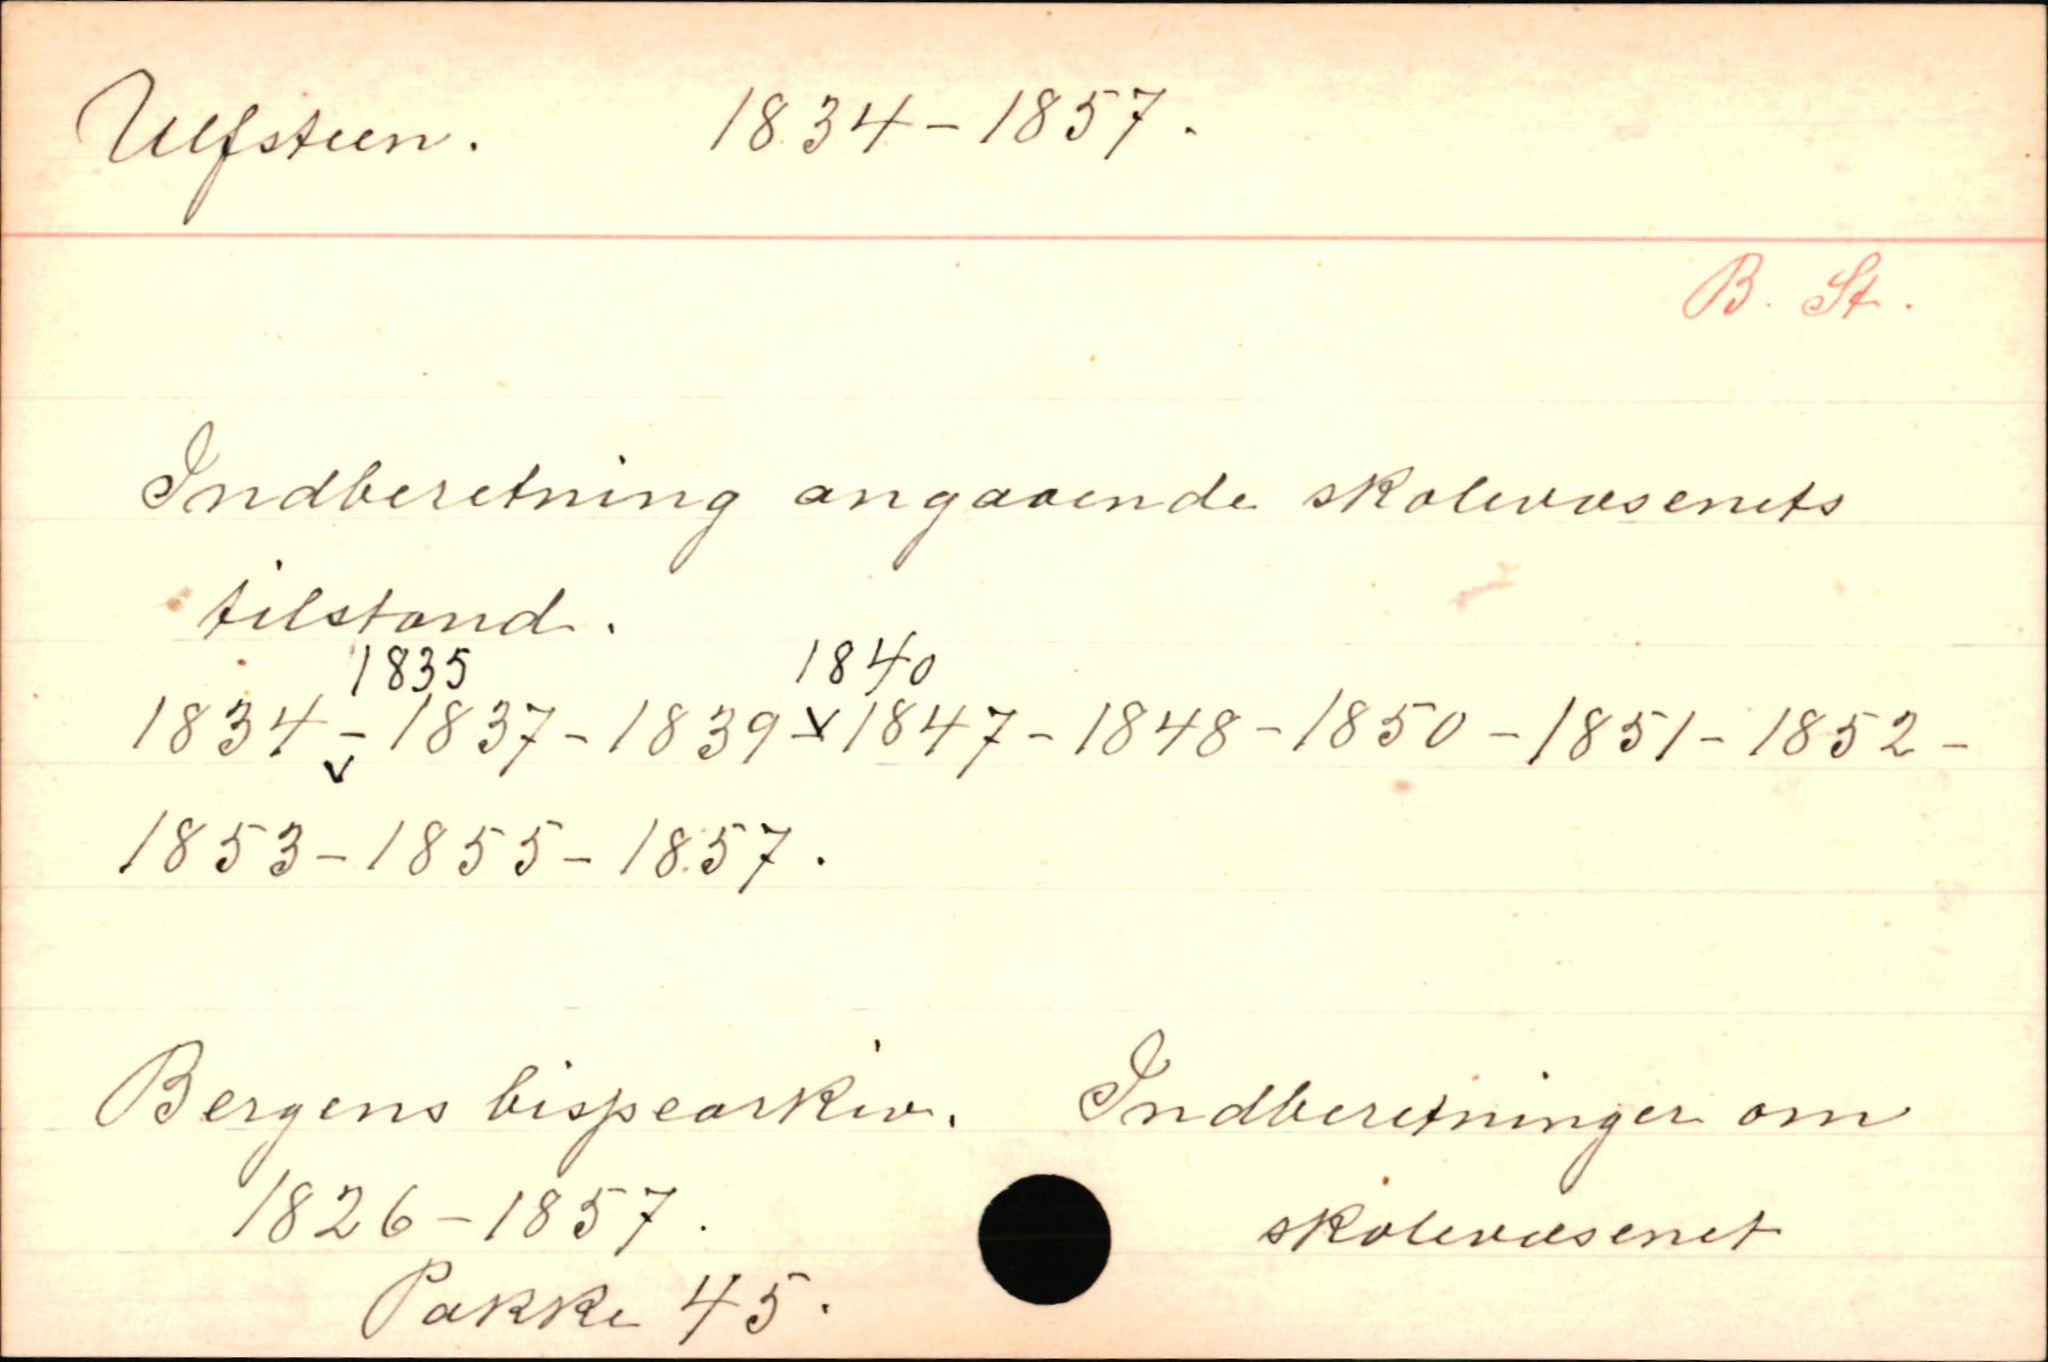 Ulfsteen. 1834-1857.
B. St.
Indberetning angaaende skolevæsenets
tilstand.
1835 1840
1834 - 1837 - 1839 - 1847 - 1848 - 1850 - 1851 - 1852 -
1853 - 1855 - 1857.
Bergens bispearkiv. Indberetninger om
1826-1857. skolevæsenet
Pakke 45.